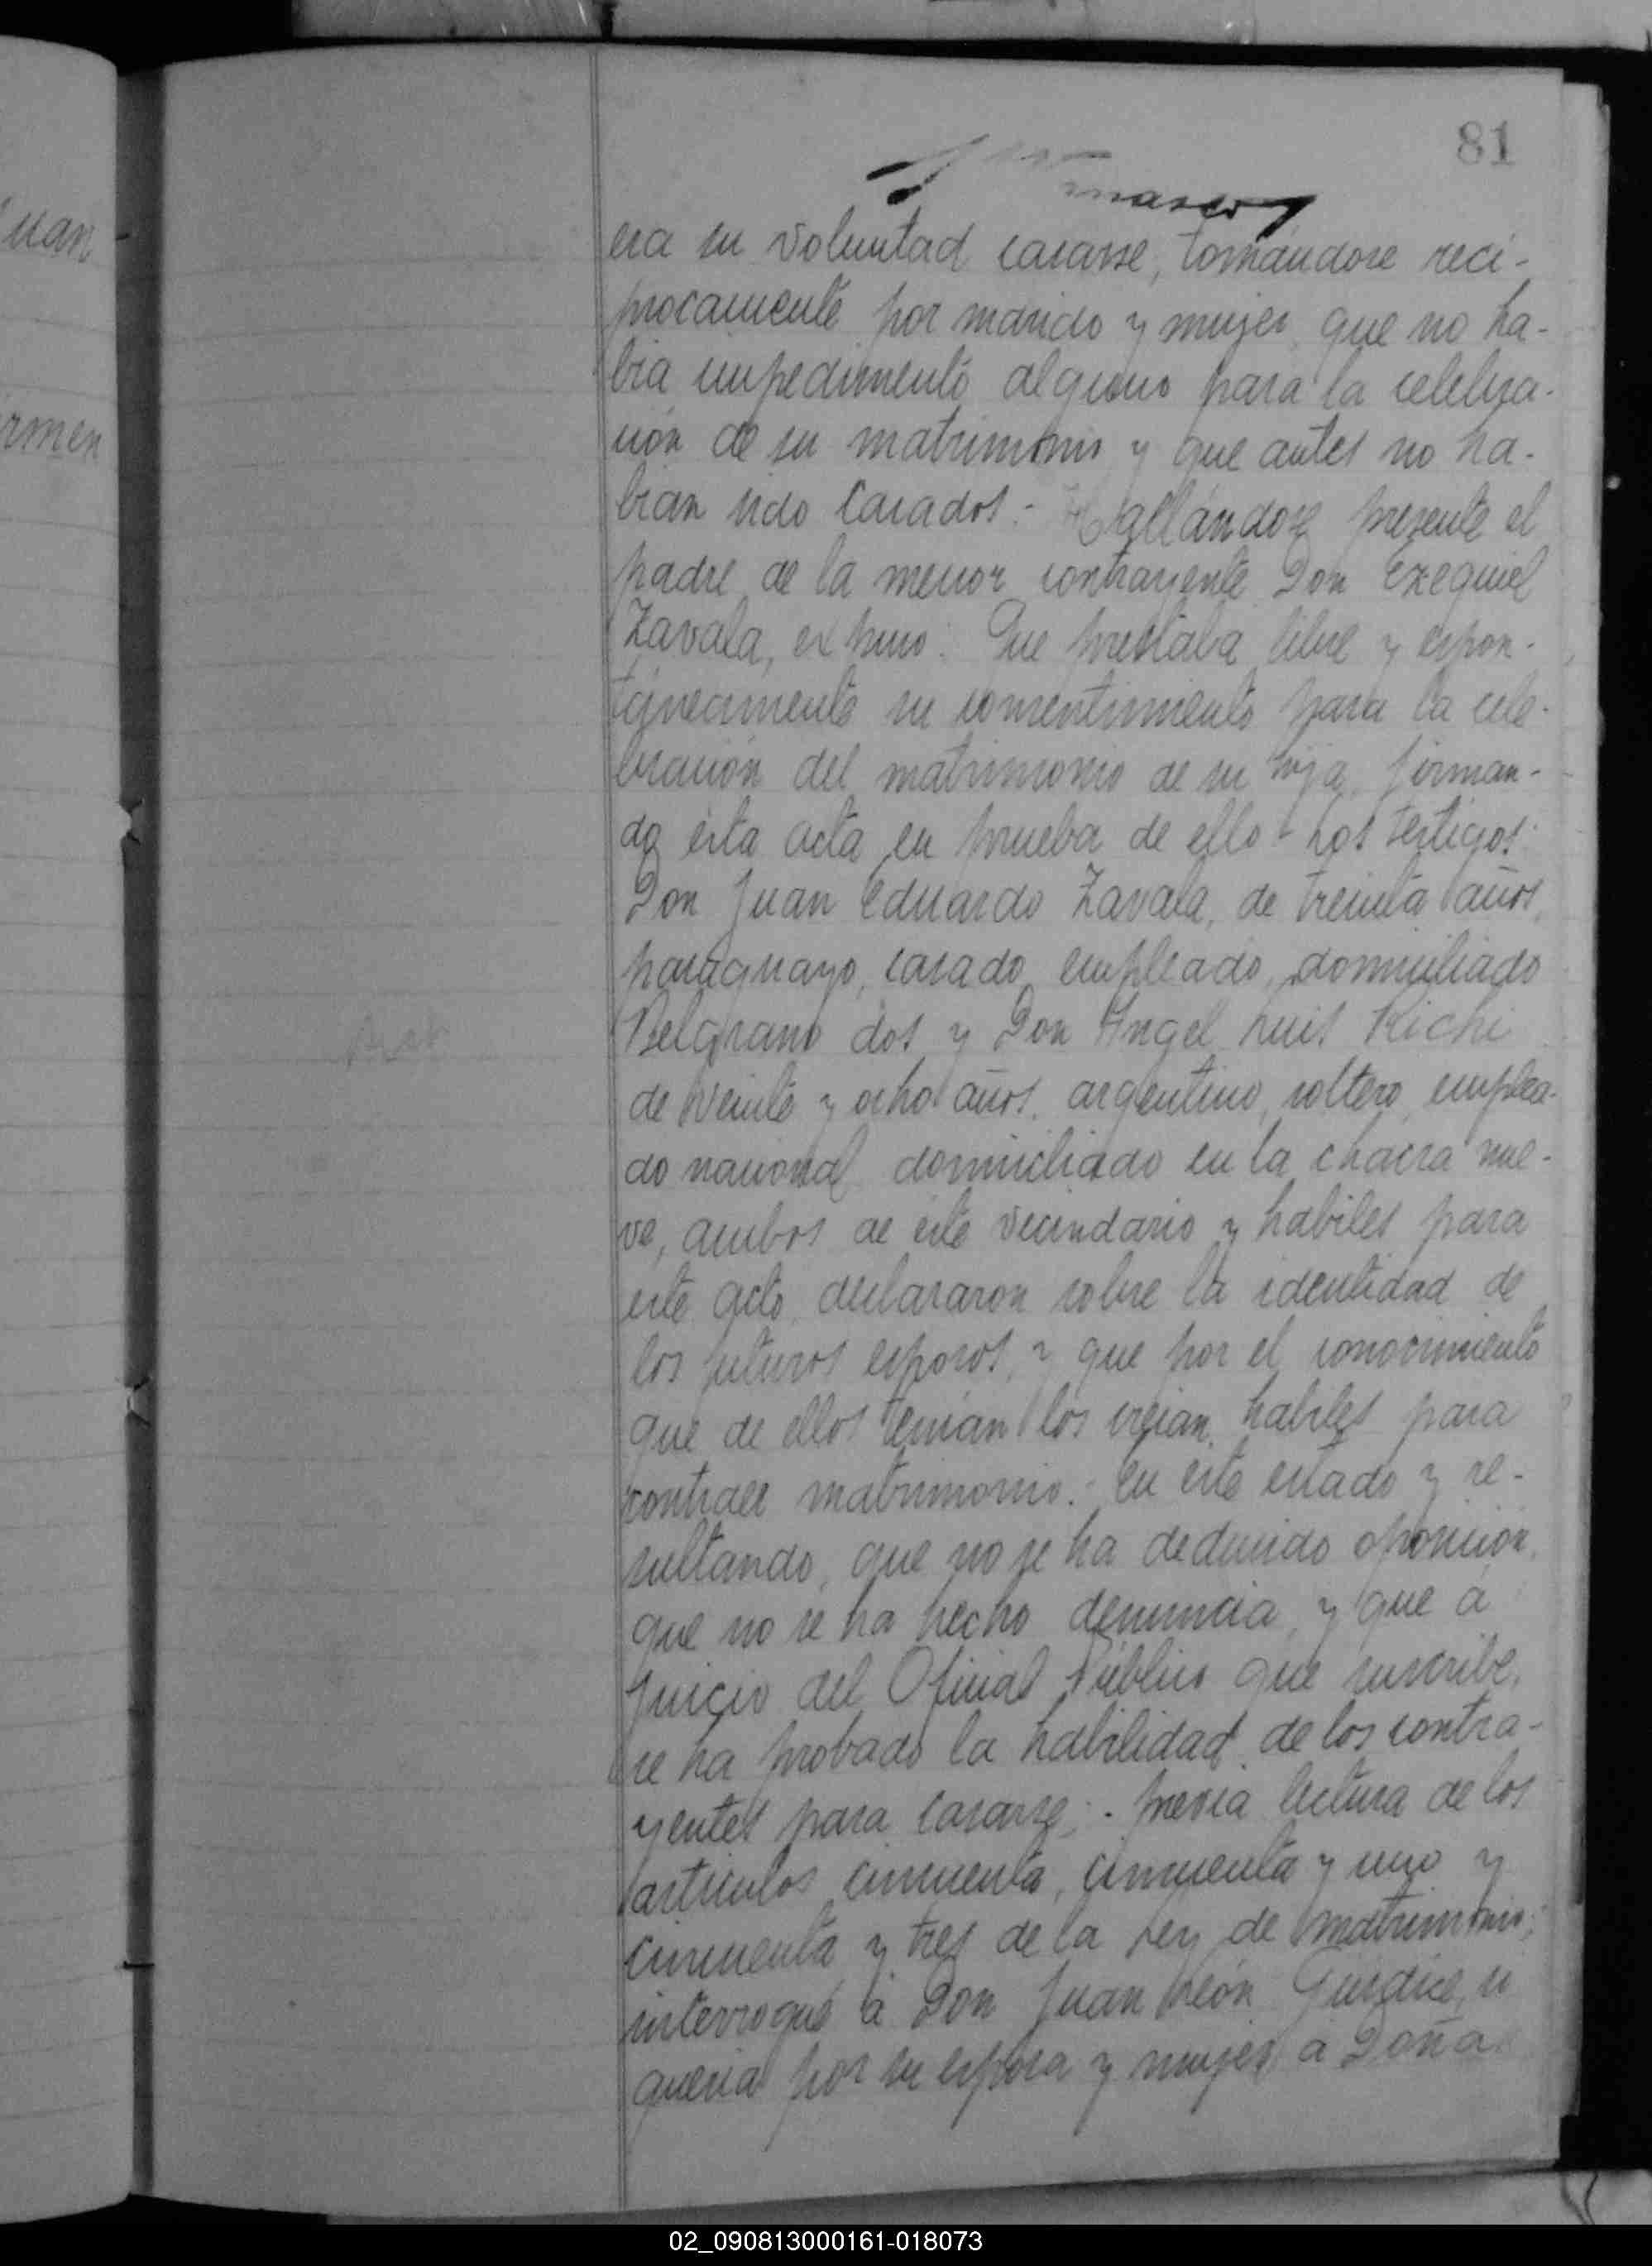 uan
rmen
81
era su voluntad casarse, tomándose reci-
procamente por marido y mujer, que no ha-
bia impedimento alguno para la celebra-
ción de su matrimonio y que antes no ha-
bian sido casados.- Hallándose presente el
padre de la menor contrayente Don Ezequiel
Zavala, expuso: Que prestaba libre y espon-
táneamente su consentimiento para la cele-
bración del matrimonio de su hija, firman-
do ésta acta en prueba de ello - Los testigos:
Don Juan Eduardo Zavala, de treinta años,
paraguayo, casado, empleado, domiciliado
Belgrano dos y Don Angel Luis Kichi
de veinte y ocho años, argentino, soltero, emplea-
do nacional domiciliado en la chacra nue-
ve, ambos de éste vecindario y habiles para
este acto, declararon sobre la identidad de
los futuros esposos, y que por el conocimiento
que de ellos tenian los creian habiles para
contraer matrimonio.- En este estado y re-
sultando, que no se ha deducido oposición,
que no se ha hecho denuncia, y que á
juicio del Oficial Público que suscribe,
se ha probado la habilidad de los contra-
yentes para casarse;- previa lectura de los
articulos cincuenta, cincuenta y uno y
cincuenta y tres de la Ley de matrimonio;
interrogué á Don Juan León si
queria por su esposa y mujer á Doña
02_090813000161-018073